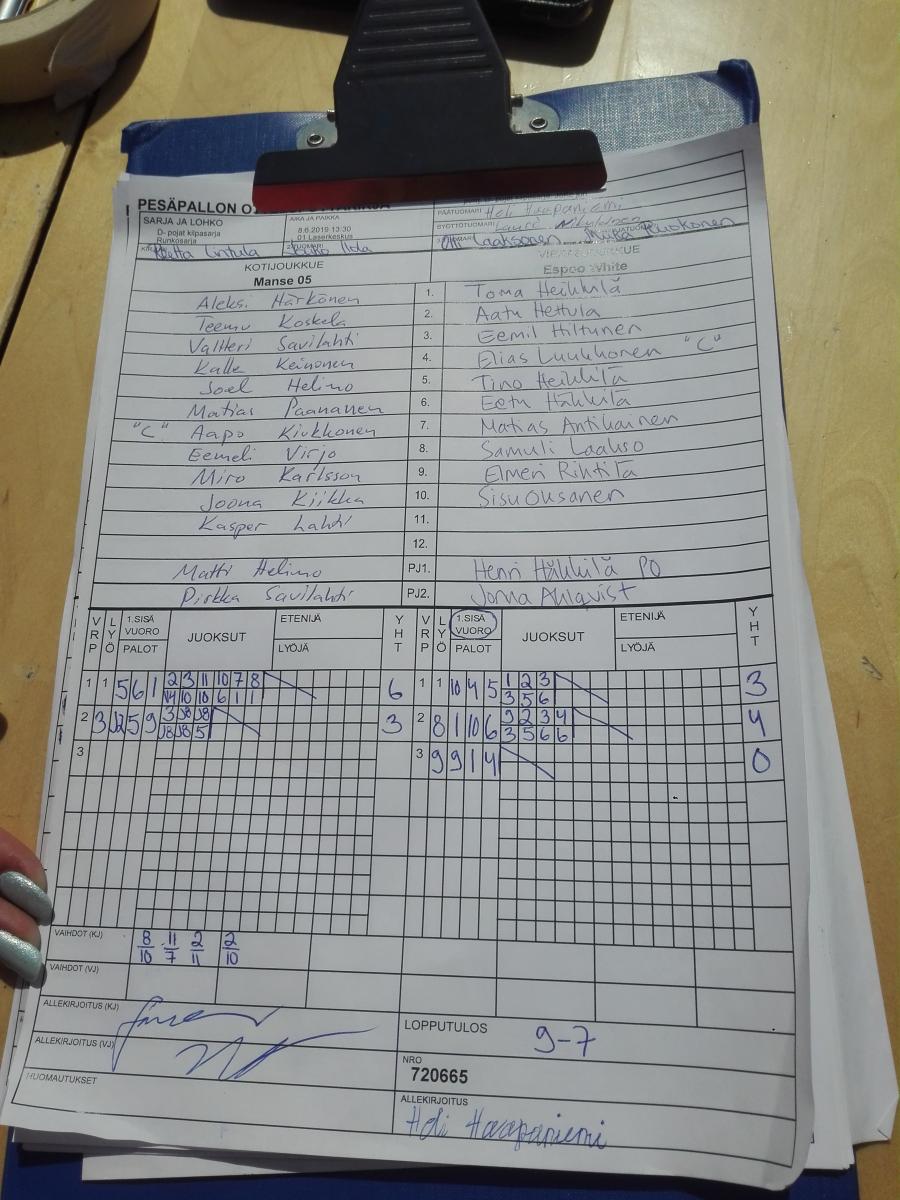 PESÄPALLON
SARJA JA LOHKO
D- pojat kilpasarja
Runkosarja
AIKA JA PAIKKA
8.6.2019 13:30
01 Laserkeskus
PÄÄTUOMARI Heli Haapaniemi
SYÖTTÖTUOMARI Lauri
Reetta Lintula
Jouko Ilola
Otti Laaksonen
Miika Ruokonen
KOTIJOUKKUE
Manse 05
VIERASJOUKKUE
Espoo white
Aleksi Härkönen 1. Toma Heikkilä
Teemu Koskela 2. Aatu Hettula
Valtteri Savilahti 3. Eemil Hiltunen
Kalle Keinonen 4. Elias Luukkonen "C"
Joel Helimo 5. Tino Heikkilä
Matias Paananen 6. Eetu Häkkilä
"C" Aapo Kiukkonen 7. Matias Antikainen
Eemeli Virjo 8. Samuli Laakso
Miro Karlsson 9. Elmeri Rihtilä
Joona Kiikka 10. Sisu Ousanen
Kasper Lahti 11.
12.
Matti Helimo PJ1. Henri Häkkilä PO
Pirkka Savilahti PJ2. Jorma Ahlqvist
VRP LYÖ 1.SISÄ VUORO PALOT JUOKSUT ETENIJÄ LYÖJÄ YHT VRP LYÖ 1.SISÄ VUORO PALOT JUOKSUT ETENIJÄ LYÖJÄ YHT
1 1 5 6 1 2 3 11 10 7 8 6 1 1 10 4 5 1 2 3 3
10 10 6 1 1 3 5 6
2 3 5 9 3 3 2 8 1 10 6 9 2 3 4 4
5 3 5 6 6
3 3 9 9 1 4 0
VAIHDOT (KJ) 8/10 11/7 2/11 2/10
VAIHDOT (VJ)
ALLEKIRJOITUS (KJ)
LOPPUTULOS 9-7
ALLEKIRJOITUS (VJ)
NRO
720665
HUOMAUTUKSET
ALLEKIRJOITUS
Heli Haapaniemi